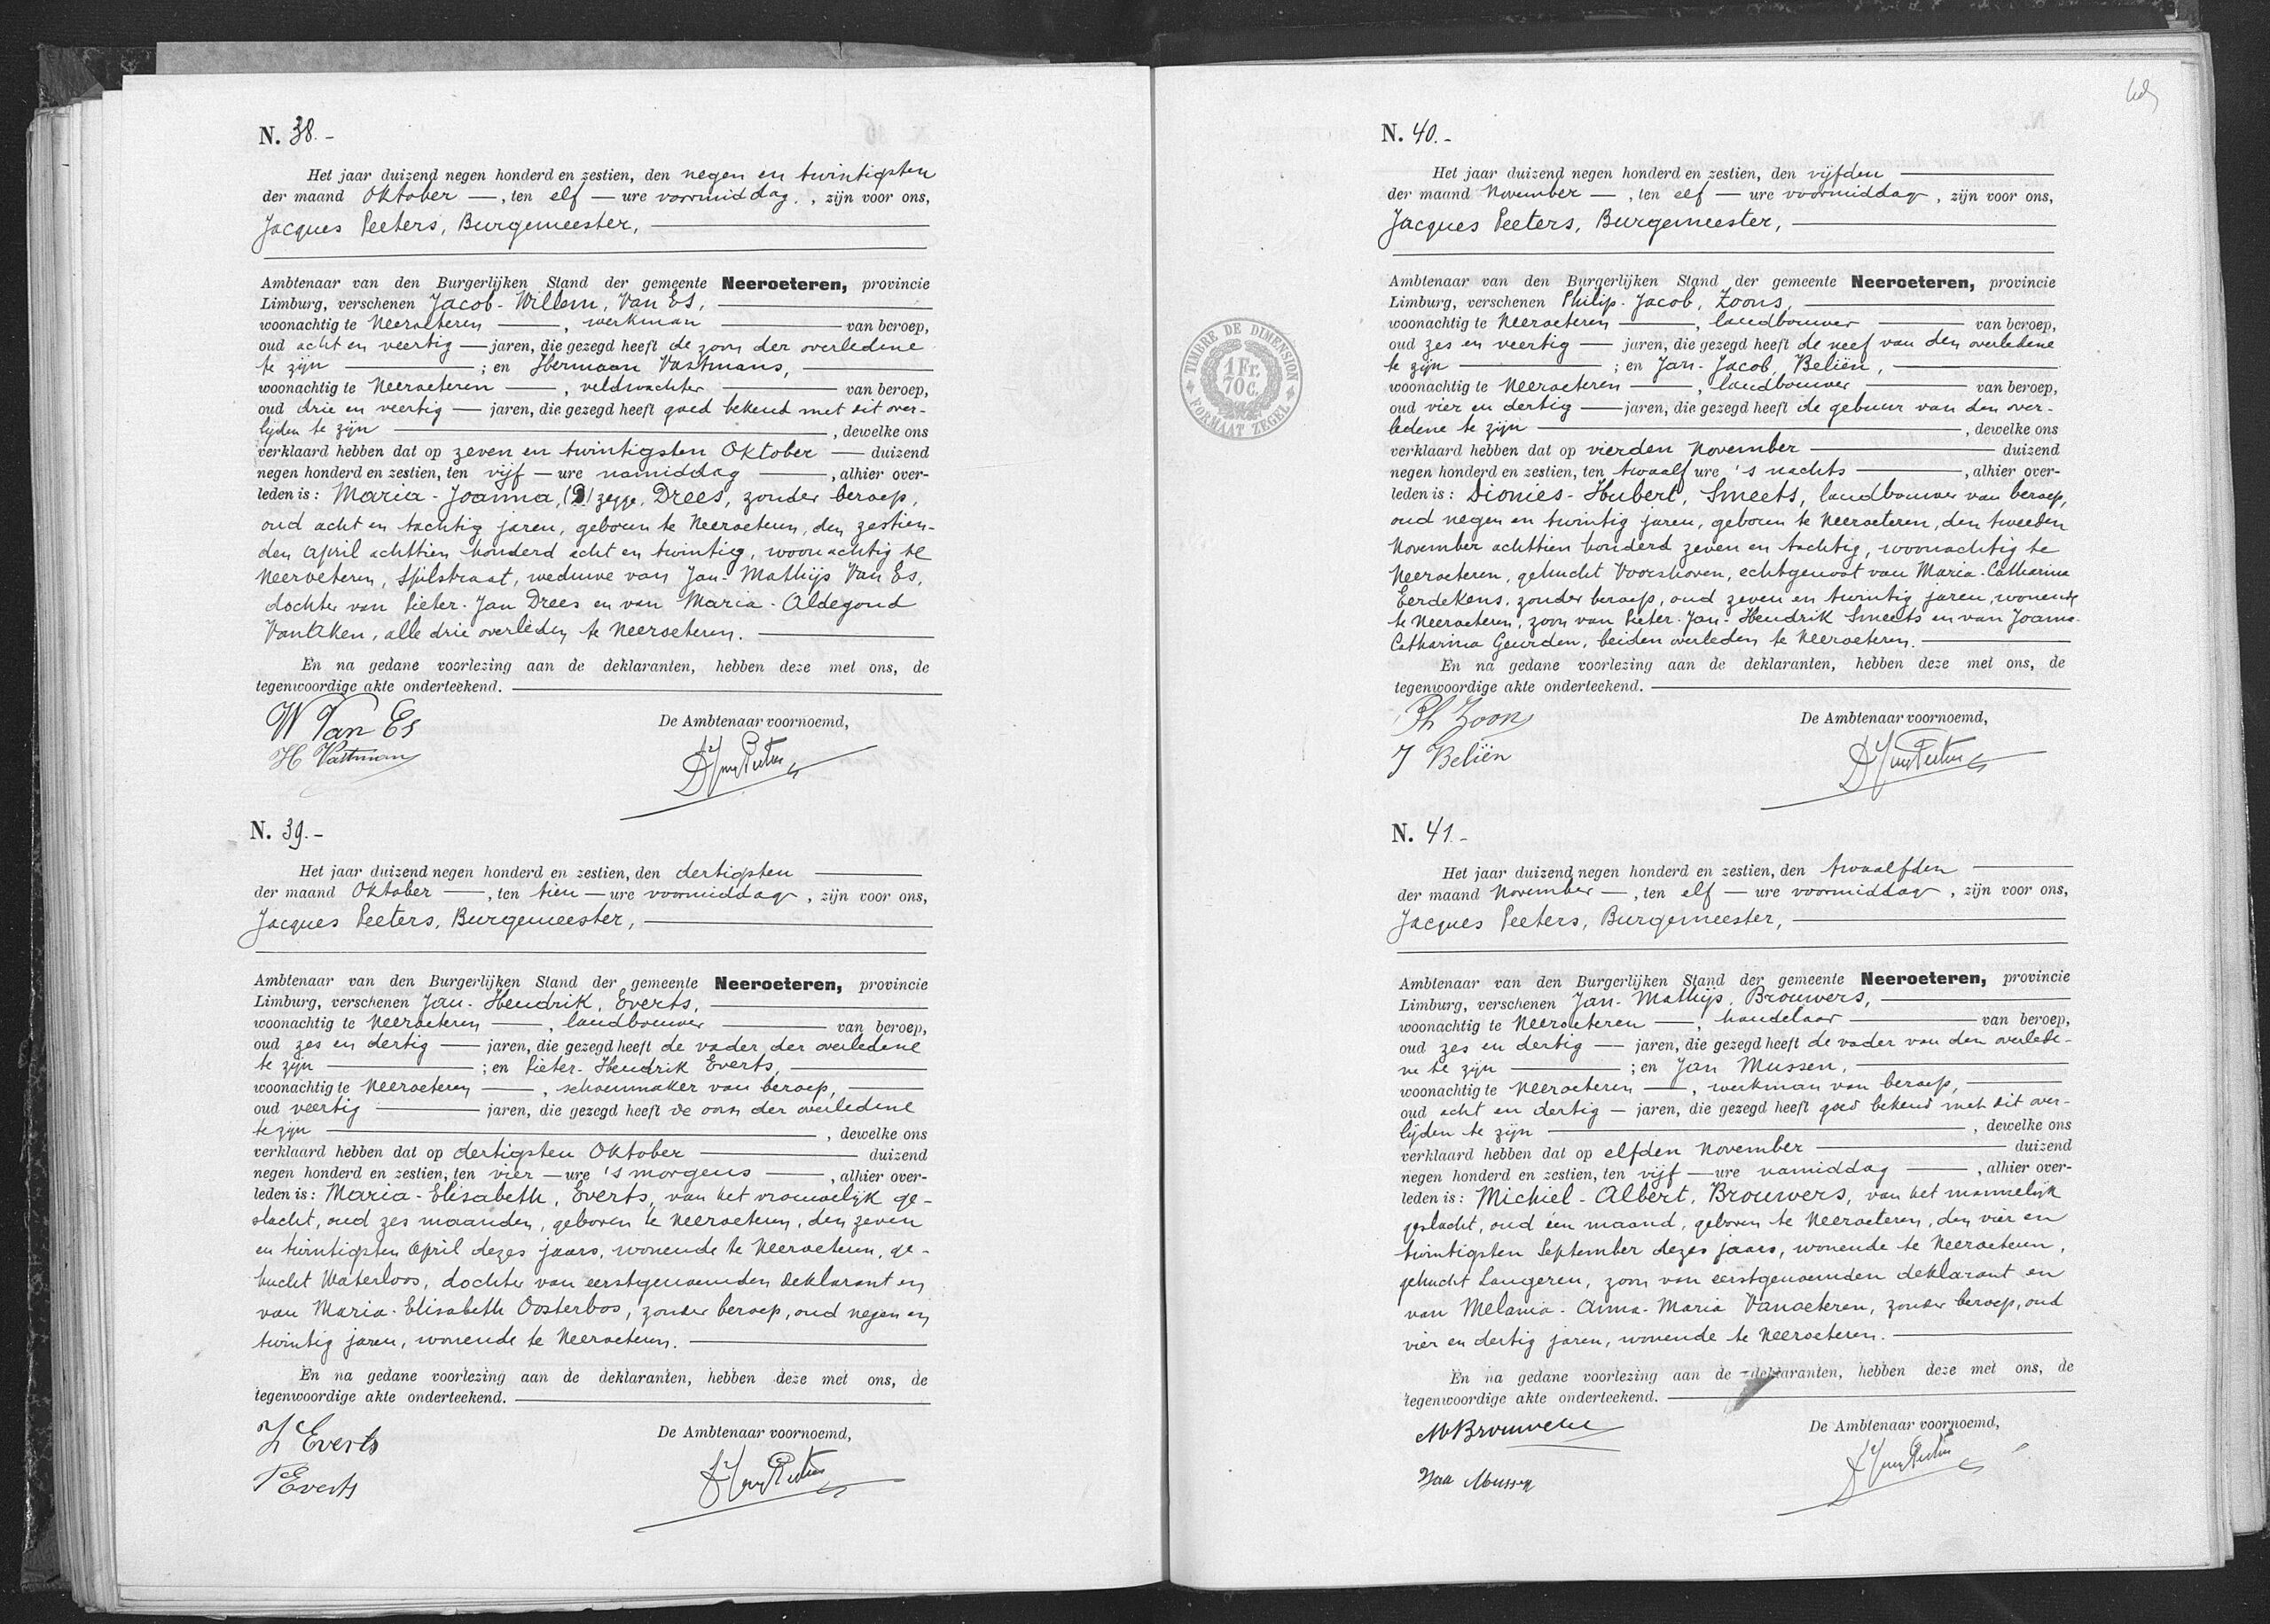 N. 38.-
Het jaar duizend negen honderd en zestien, den negen en twintigsten
der maand Oktober —, ten elf — ure voormiddag, zijn voor ons,
Jacques Peeters, Burgemeester,
Ambtenaar van den Burgerlijken Stand der gemeente Neeroeteren, provincie
Limburg, verschenen Jacob-Willem, Van Es,
woonachtig te Neeroeteren —, werkman — van beroep,
oud acht en veertig — jaren, die gezegd heeft de zoon der overledene
te zijn — ; en Herman Vastmans,
woonachtig te Neeroeteren —, veldwachter — van beroep,
oud drie en veertig — jaren, die gezegd heeft goed bekend met dit over-
lijden te zijn —, dewelke ons
verklaard hebben dat op zeven en twintigsten Oktober — duizend
negen honderd en zestien, ten vijf — ure namiddag —, alhier over-
leden is: Maria-Joanna, (D) zegge, Drees, zonder beroep,
oud acht en tachtig jaren, geboren te Neeroeteren, den zestien-
den April achttien honderd acht en twintig, woonachtig te
Neeroeteren, Spilstraat, weduwe van Jan-Mathijs Van Es,
dochter van Pieter-Jan Drees en van Maria-Aldegond
VanAken, alle drie overleden te Neeroeteren.
En na gedane voorlezing aan de deklaranten, hebben deze met ons, de
tegenwoordige akte onderteekend.
De Ambtenaar voornoemd,
W Van Es
H Vastmans
N. 39.-
Het jaar duizend negen honderd en zestien, den dertigsten
der maand Oktober —, ten tien — ure voormiddag, zijn voor ons,
Jacques Peeters, Burgemeester,
Ambtenaar van den Burgerlijken Stand der gemeente Neeroeteren, provincie
Limburg, verschenen Jan-Hendrik, Everts,
woonachtig te Neeroeteren —, landbouwer — van beroep,
oud zes en dertig — jaren, die gezegd heeft de vader der overledene
te zijn — ; en Pieter-Hendrik Everts,
woonachtig te Neeroeteren —, schoenmaker van beroep,
oud veertig — jaren, die gezegd heeft de oom der overledene
te zijn —, dewelke ons
verklaard hebben dat op dertigsten Oktober — duizend
negen honderd en zestien, ten vier — ure 's morgens —, alhier over-
leden is: Maria-Elisabeth, Everts, van het vrouwelijk ge-
slacht, oud zes maanden, geboren te Neeroeteren, den zeven
en twintigsten April dezes jaars, wonende te Neeroeteren, ge-
hucht Waterloos, dochter van eerstgenoemden deklarant en
van Maria-Elisabeth Oosterbos, zonder beroep, oud negen en
twintig jaren, wonende te Neeroeteren.
En na gedane voorlezing aan de deklaranten, hebben deze met ons, de
tegenwoordige akte onderteekend.
De Ambtenaar voornoemd,
H Everts
P Everts
N. 40.-
Het jaar duizend negen honderd en zestien, den vijfden
der maand November —, ten elf — ure voormiddag, zijn voor ons,
Jacques Peeters, Burgemeester,
Ambtenaar van den Burgerlijken Stand der gemeente Neeroeteren, provincie
Limburg, verschenen Philip-Jacob, Zoons,
woonachtig te Neeroeteren —, landbouwer — van beroep,
oud zes en veertig — jaren, die gezegd heeft de neef van den overledene
te zijn — ; en Jan-Jacob, Beliën,
woonachtig te Neeroeteren —, landbouwer — van beroep,
oud vier en dertig — jaren, die gezegd heeft de gebuur van den over-
ledene te zijn —, dewelke ons
verklaard hebben dat op vierden November — duizend
negen honderd en zestien, ten twaalf ure 's nachts —, alhier over-
leden is: Dionies-Hubert, Smeets, landbouwer van beroep,
oud negen en twintig jaren, geboren te Neeroeteren, den tweeden
November achttien honderd zeven en tachtig, woonachtig te
Neeroeteren, gehucht Voorshoven, echtgenoot van Maria-Catharina
Eerdekens, zonder beroep, oud zeven en twintig jaren, wonende
te Neeroeteren, zoon van Pieter-Jan-Hendrik Smeets en van Joanna-
Catharina Geurden, beiden overleden te Neeroeteren.
En na gedane voorlezing aan de deklaranten, hebben deze met ons, de
tegenwoordige akte onderteekend.
De Ambtenaar voornoemd,
Ph Zoons
J Beliën
TIMBRE DE DIMENSION
1 Fr. 70 C.
FORMAAT ZEGEL
N. 41.-
Het jaar duizend negen honderd en zestien, den twaalfden
der maand November —, ten elf — ure voormiddag, zijn voor ons,
Jacques Peeters, Burgemeester,
Ambtenaar van den Burgerlijken Stand der gemeente Neeroeteren, provincie
Limburg, verschenen Jan-Mathijs, Brouwers,
woonachtig te Neeroeteren —, handelaar — van beroep,
oud zes en dertig — jaren, die gezegd heeft de vader van den overlede-
ne te zijn — ; en Jan Mussen,
woonachtig te Neeroeteren —, werkman van beroep,
oud acht en dertig — jaren, die gezegd heeft goed bekend met dit over-
lijden te zijn —, dewelke ons
verklaard hebben dat op elfden November — duizend
negen honderd en zestien, ten vijf — ure namiddag —, alhier over-
leden is: Michiel-Albert, Brouwers, van het mannelijk
geslacht, oud één maand, geboren te Neeroeteren, den vier en
twintigsten September dezes jaars, wonende te Neeroeteren,
gehucht Langeren, zoon van eerstgenoemden deklarant en
van Melania-Anna-Maria Vanoeteren, zonder beroep, oud
vier en dertig jaren, wonende te Neeroeteren.
En na gedane voorlezing aan de deklaranten, hebben deze met ons, de
tegenwoordige akte onderteekend.
De Ambtenaar voornoemd,
M Brouwers
Jan Mussen